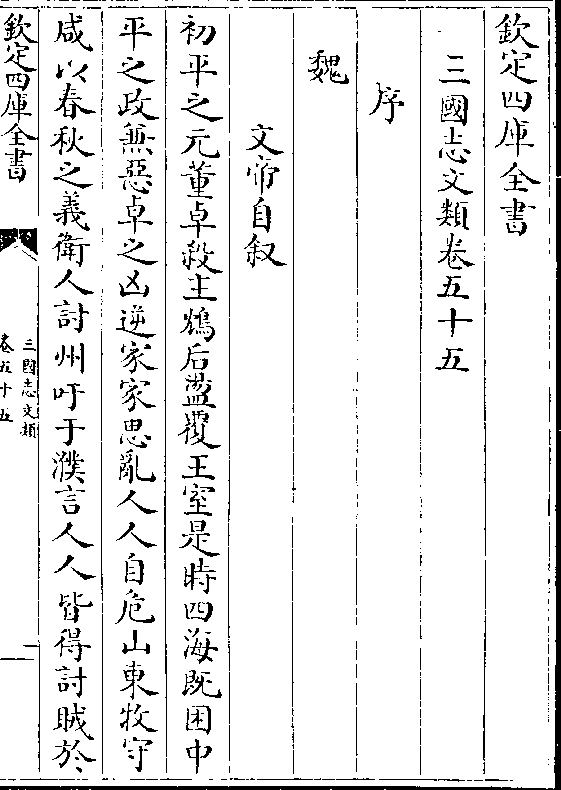 欽定四庫全書
三國志文類卷五十五
序
魏
文帝自叙
初平之元董卓殺主鴆后盪覆王室是時四海既困中
平之政兼惡卓之凶逆家家思亂人人自危山東牧守
咸以春秋之義衛人討州吁于濮言人人皆得討賊於
欽定四庫全書
三國志文類
卷五十五
一